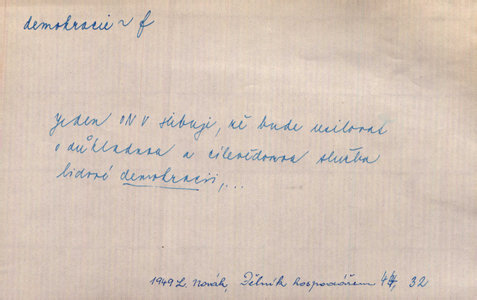 demokracie ~ f
jeden ONV slibuje, že bude usilovat
o důkladnou a cílevědomou službu
lidové demokracii, ...
1949 L. Novák, Dělník hospodářem 44, 32